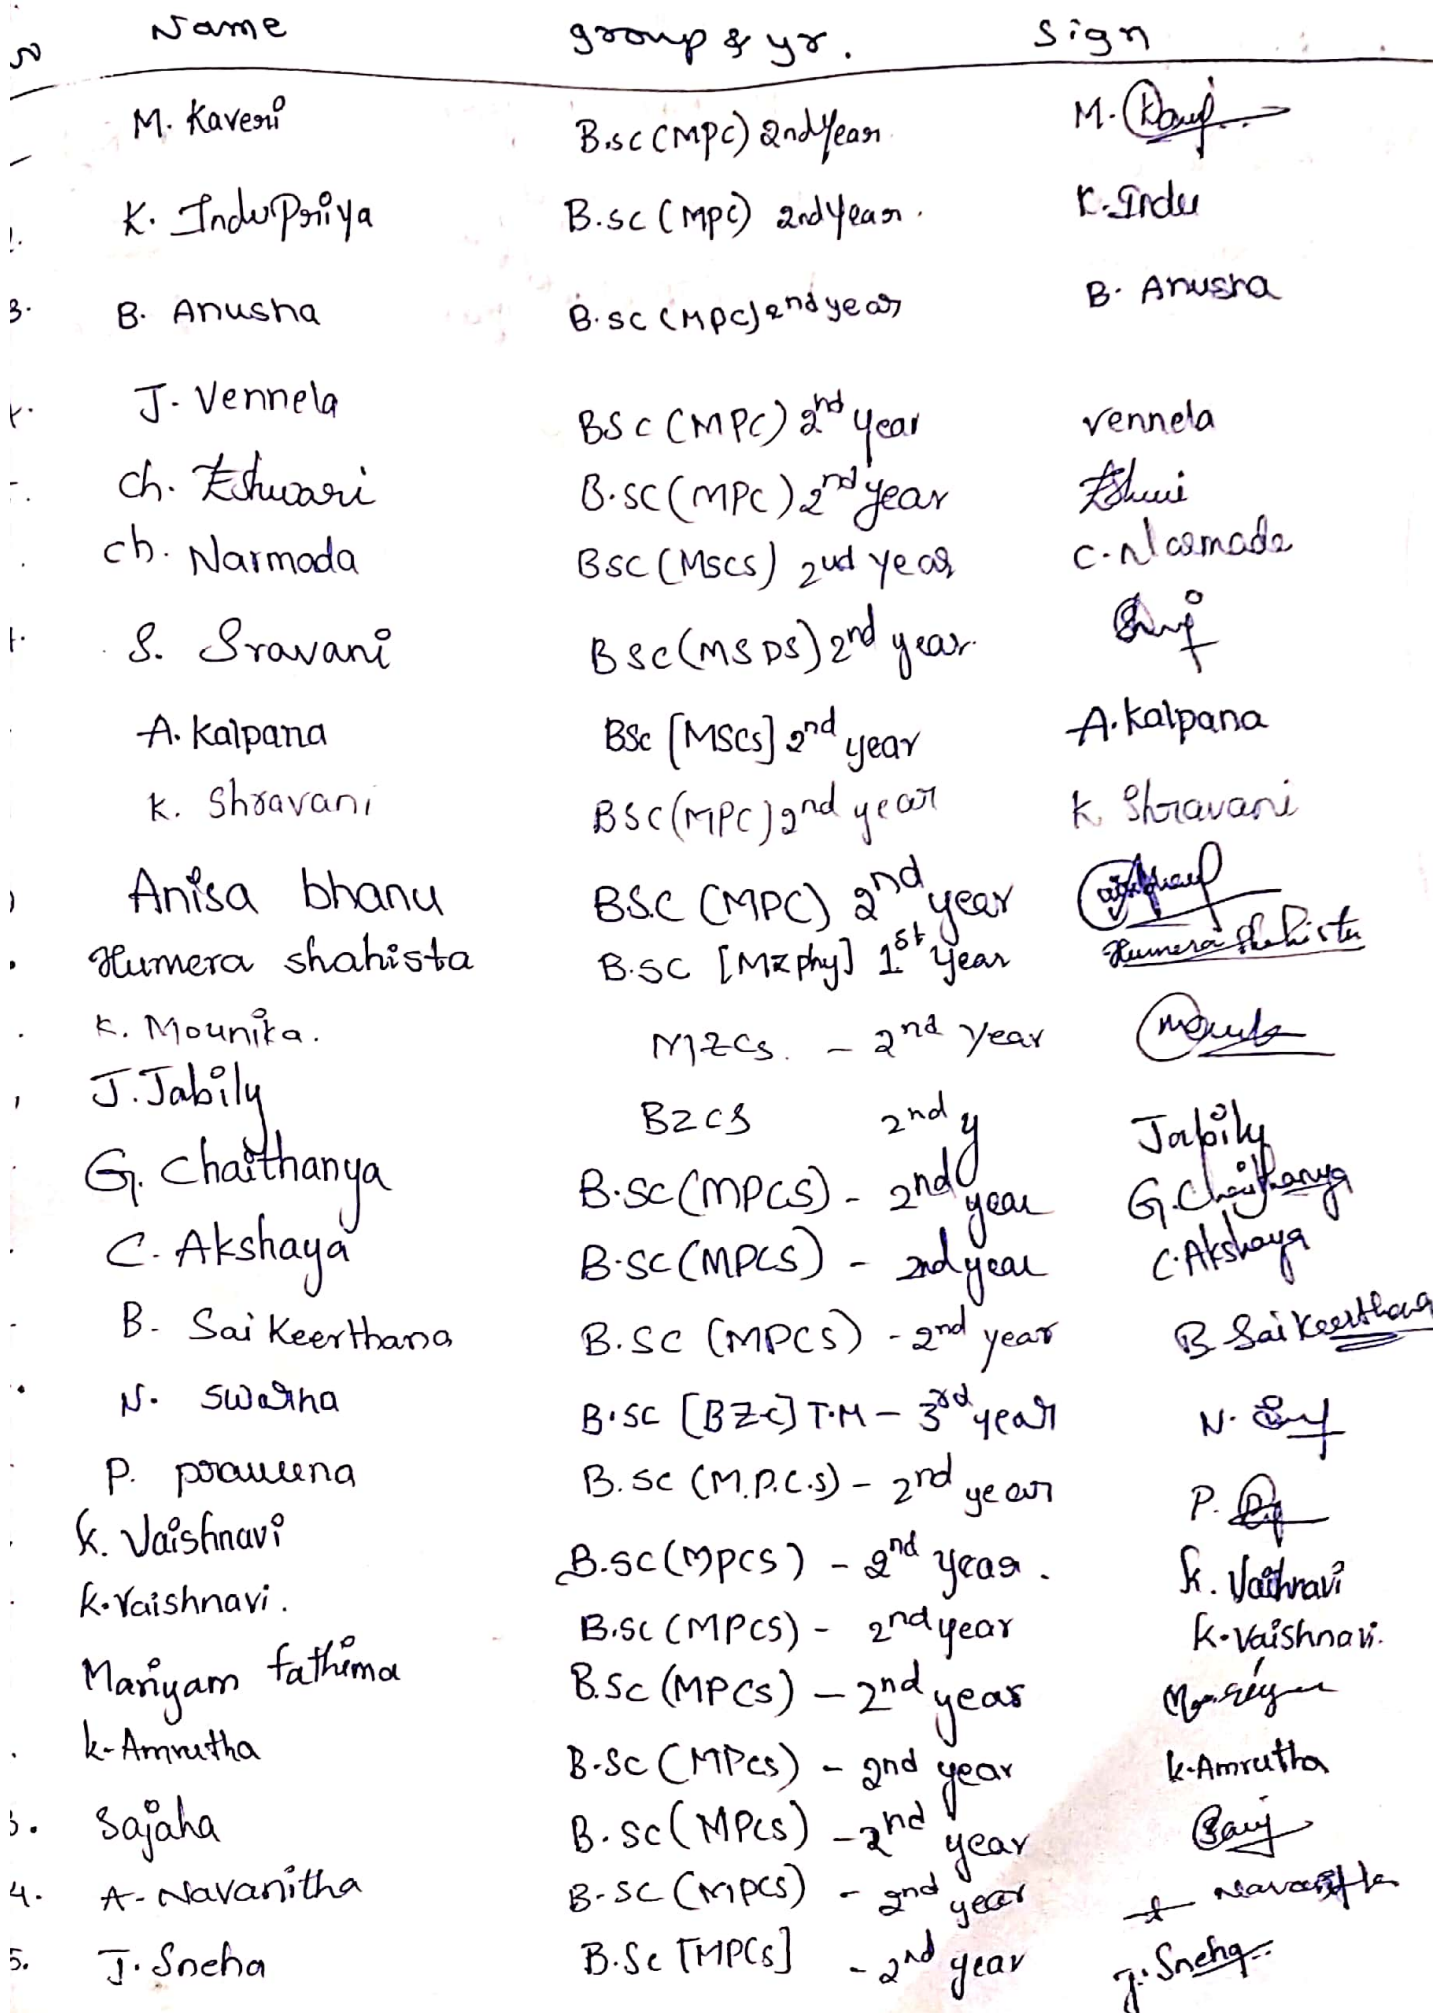 Name group & yr. Sign
M. Kaveri B.sc (MPC) 2nd Year M.
2. K. Indu Priya B.sc (MPC) 2nd Year. K. Indu
3. B. Anusha B.sc (MPC) 2nd year B. Anusha
J. Vennela BSC (MPC) 2nd year vennela
ch. Eshwari B.SC (MPC) 2nd year
ch. Narmada BSC (MSCS) 2nd year C. Narmada
S. Sravani BSc (MSDS) 2nd year.
A. Kalpana BSc [MSCS] 2nd year A. Kalpana
K. Shravani BSC (MPC) 2nd year K Shravani
Anisa bhanu BSC (MPC) 2nd year
Humera shahista B.SC [MZphy] 1st year Humera Shahista
K. Mounika. MZCS. - 2nd Year
J. Jabily BZCS 2nd y Jabily
G. Chaithanya B.SC (MPCS) - 2nd year G. Chaithanya
C. Akshaya B.SC (MPCS) - 2nd year C. Akshaya
B. Sai Keerthana B.SC (MPCS) - 2nd year B Sai Keerthana
N. Swarna B.SC [BZC] T.M - 3rd year N.
P. praveena B.SC (M.P.C.S) - 2nd year P.
K. Vaishnavi B.SC (MPCS) - 2nd year. K. Vaishnavi
K. Vaishnavi. B.SC (MPCS) - 2nd year K. Vaishnavi.
Mariyam fathima B.SC (MPCS) - 2nd year
K. Amrutha B.SC (MPCS) - 2nd year K. Amrutha
3. Sajaha B.SC (MPCS) - 2nd year
4. A. Navanitha B.SC (MPCS) - 2nd year A Navanitha
5. J. Sneha B.Sc [MPCS] - 2nd year J. Sneha